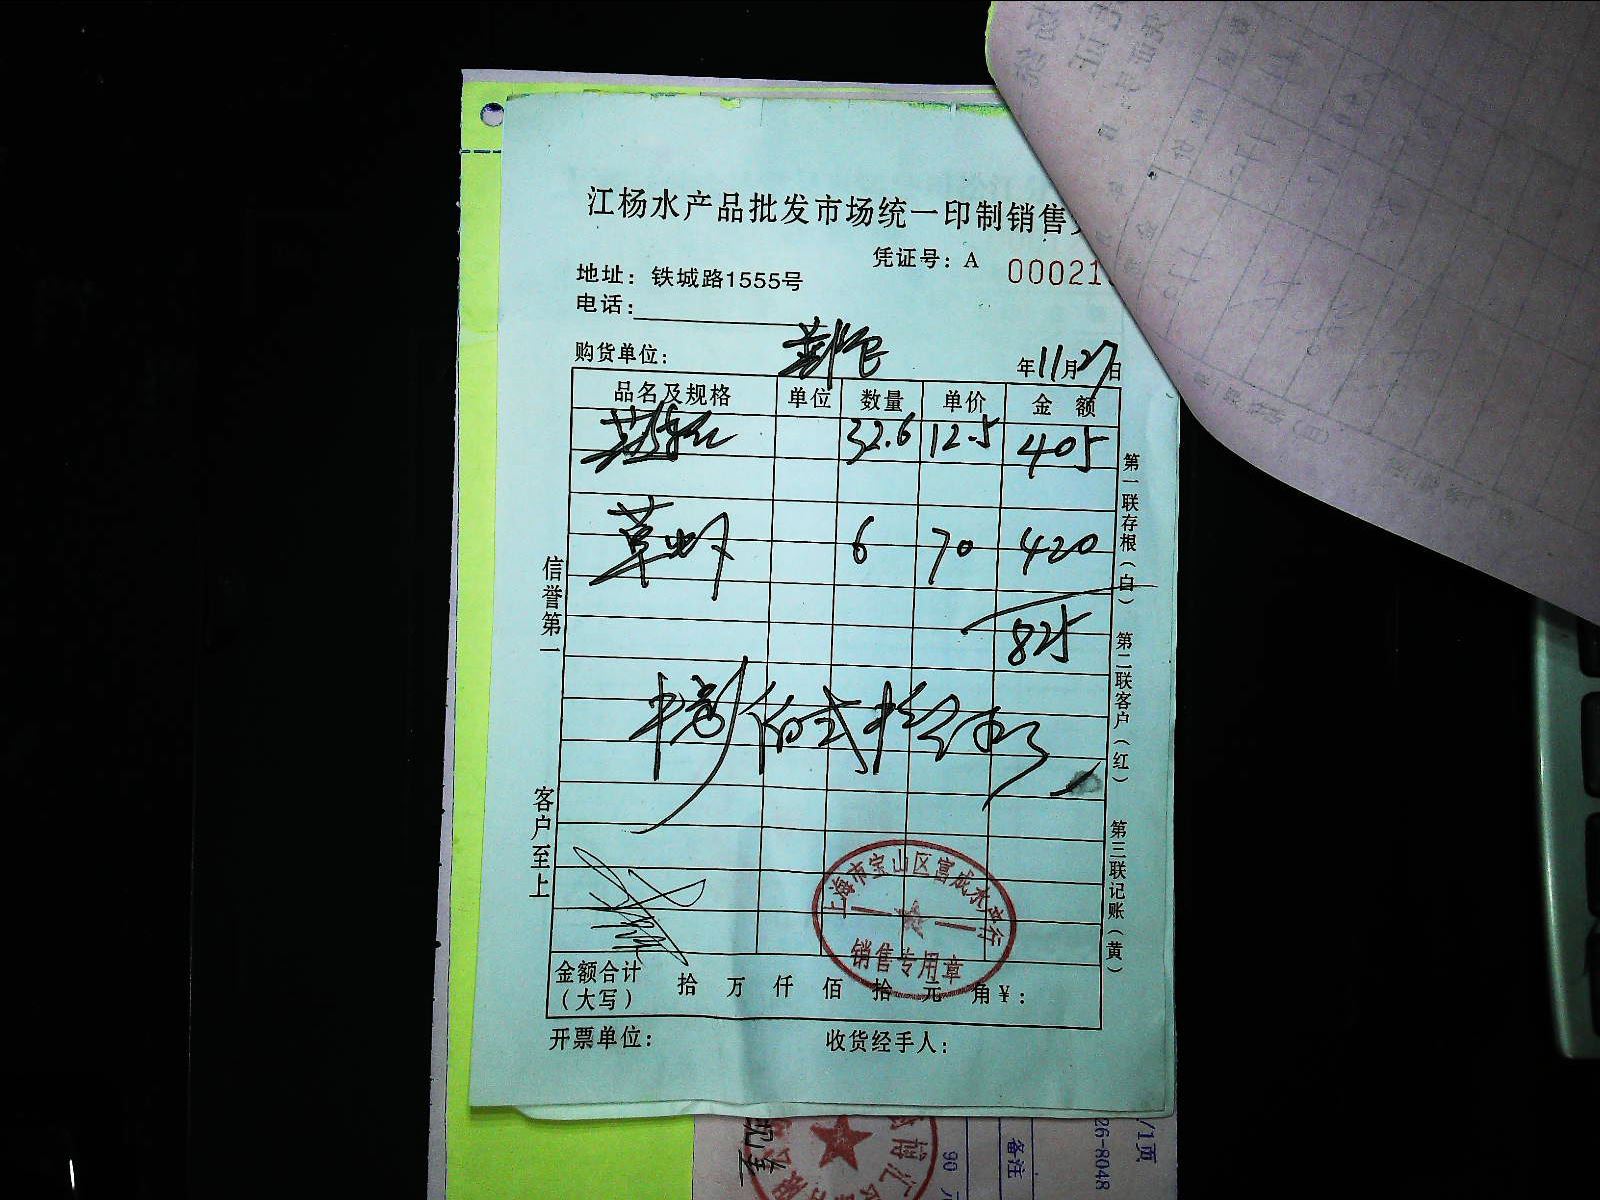 江杨水产品批发市场统一印制销售
凭证号：A 00021
地址：铁城路1555号
电话：
购货单位：
年11月27日
品名及规格 单位 数量 单价 金额
32.6 12.5 405
草虾 6 70 420
825
捌佰弍拾伍
金额合计（大写） 拾 万 仟 佰 拾 元 角 ¥：
开票单位： 收货经手人：
信誉第一
客户至上
第一联存根（白）
第二联客户（红）
第三联记账（黄）
上海市宝山区富成水产行
销售专用章
备注
90
26-8048
/1页